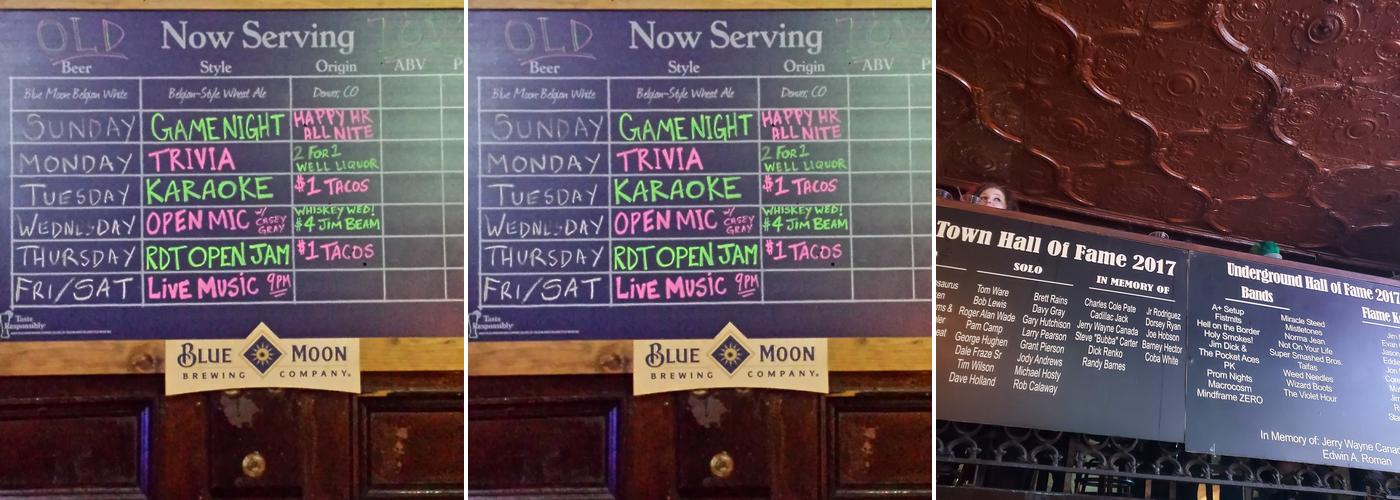 OLD
Now Serving
Beer Style Origin ABV
Blue Moon Belgian White Belgian-Style Wheat Ale Denver, CO
SUNDAY GAME NIGHT HAPPY HR ALL NITE
MONDAY TRIVIA 2 FOR 1 WELL LIQUOR
TUESDAY KARAOKE $1 TACOS
WEDNESDAY OPEN MIC W/ CASEY GRAY WHISKEY WED! $4 JIM BEAM
THURSDAY RDT OPEN JAM $1 TACOS
FRI/SAT LIVE MUSIC 9PM
Taste Responsibly
BLUE MOON
BREWING COMPANY
OLD
Now Serving
Beer Style Origin ABV
Blue Moon Belgian White Belgian-Style Wheat Ale Denver, CO
SUNDAY GAME NIGHT HAPPY HR ALL NITE
MONDAY TRIVIA 2 FOR 1 WELL LIQUOR
TUESDAY KARAOKE $1 TACOS
WEDNESDAY OPEN MIC W/ CASEY GRAY WHISKEY WED! $4 JIM BEAM
THURSDAY RDT OPEN JAM $1 TACOS
FRI/SAT LIVE MUSIC 9PM
Taste Responsibly
BLUE MOON
BREWING COMPANY
Town Hall Of Fame 2017
SOLO
Tom Ware
Bob Lewis
Roger Alan Wade
Pam Camp
George Hughen
Dale Fraze Sr
Tim Wilson
Dave Holland
Brett Rains
Davy Gray
Gary Hutchison
Larry Pearson
Grant Pearson
Jody Andrews
Michael Hosty
Rob Calaway
IN MEMORY OF
Charles Cole Pate
Cadillac Jack
Jerry Wayne Canada
Steve "Bubba" Carter
Dick Renko
Randy Barnes
Jr Rodriguez
Dorsey Ryan
Joe Hobson
Barney Hector
Coba White
Underground Hall of Fame 2017
Bands
A+ Setup
Fistmits
Hell on the Border
Holy Smokes!
Jim Dick &
The Pocket Aces
PK
Prom Nights
Macrocosm
Mindframe ZERO
Miracle Steed
Mistletones
Norma Jean
Not On Your Life
Super Smashed Bros.
Taifas
Weed Needles
Wizard Boots
The Violet Hour
Flame
In Memory of: Jerry Wayne
Edwin A. Roman